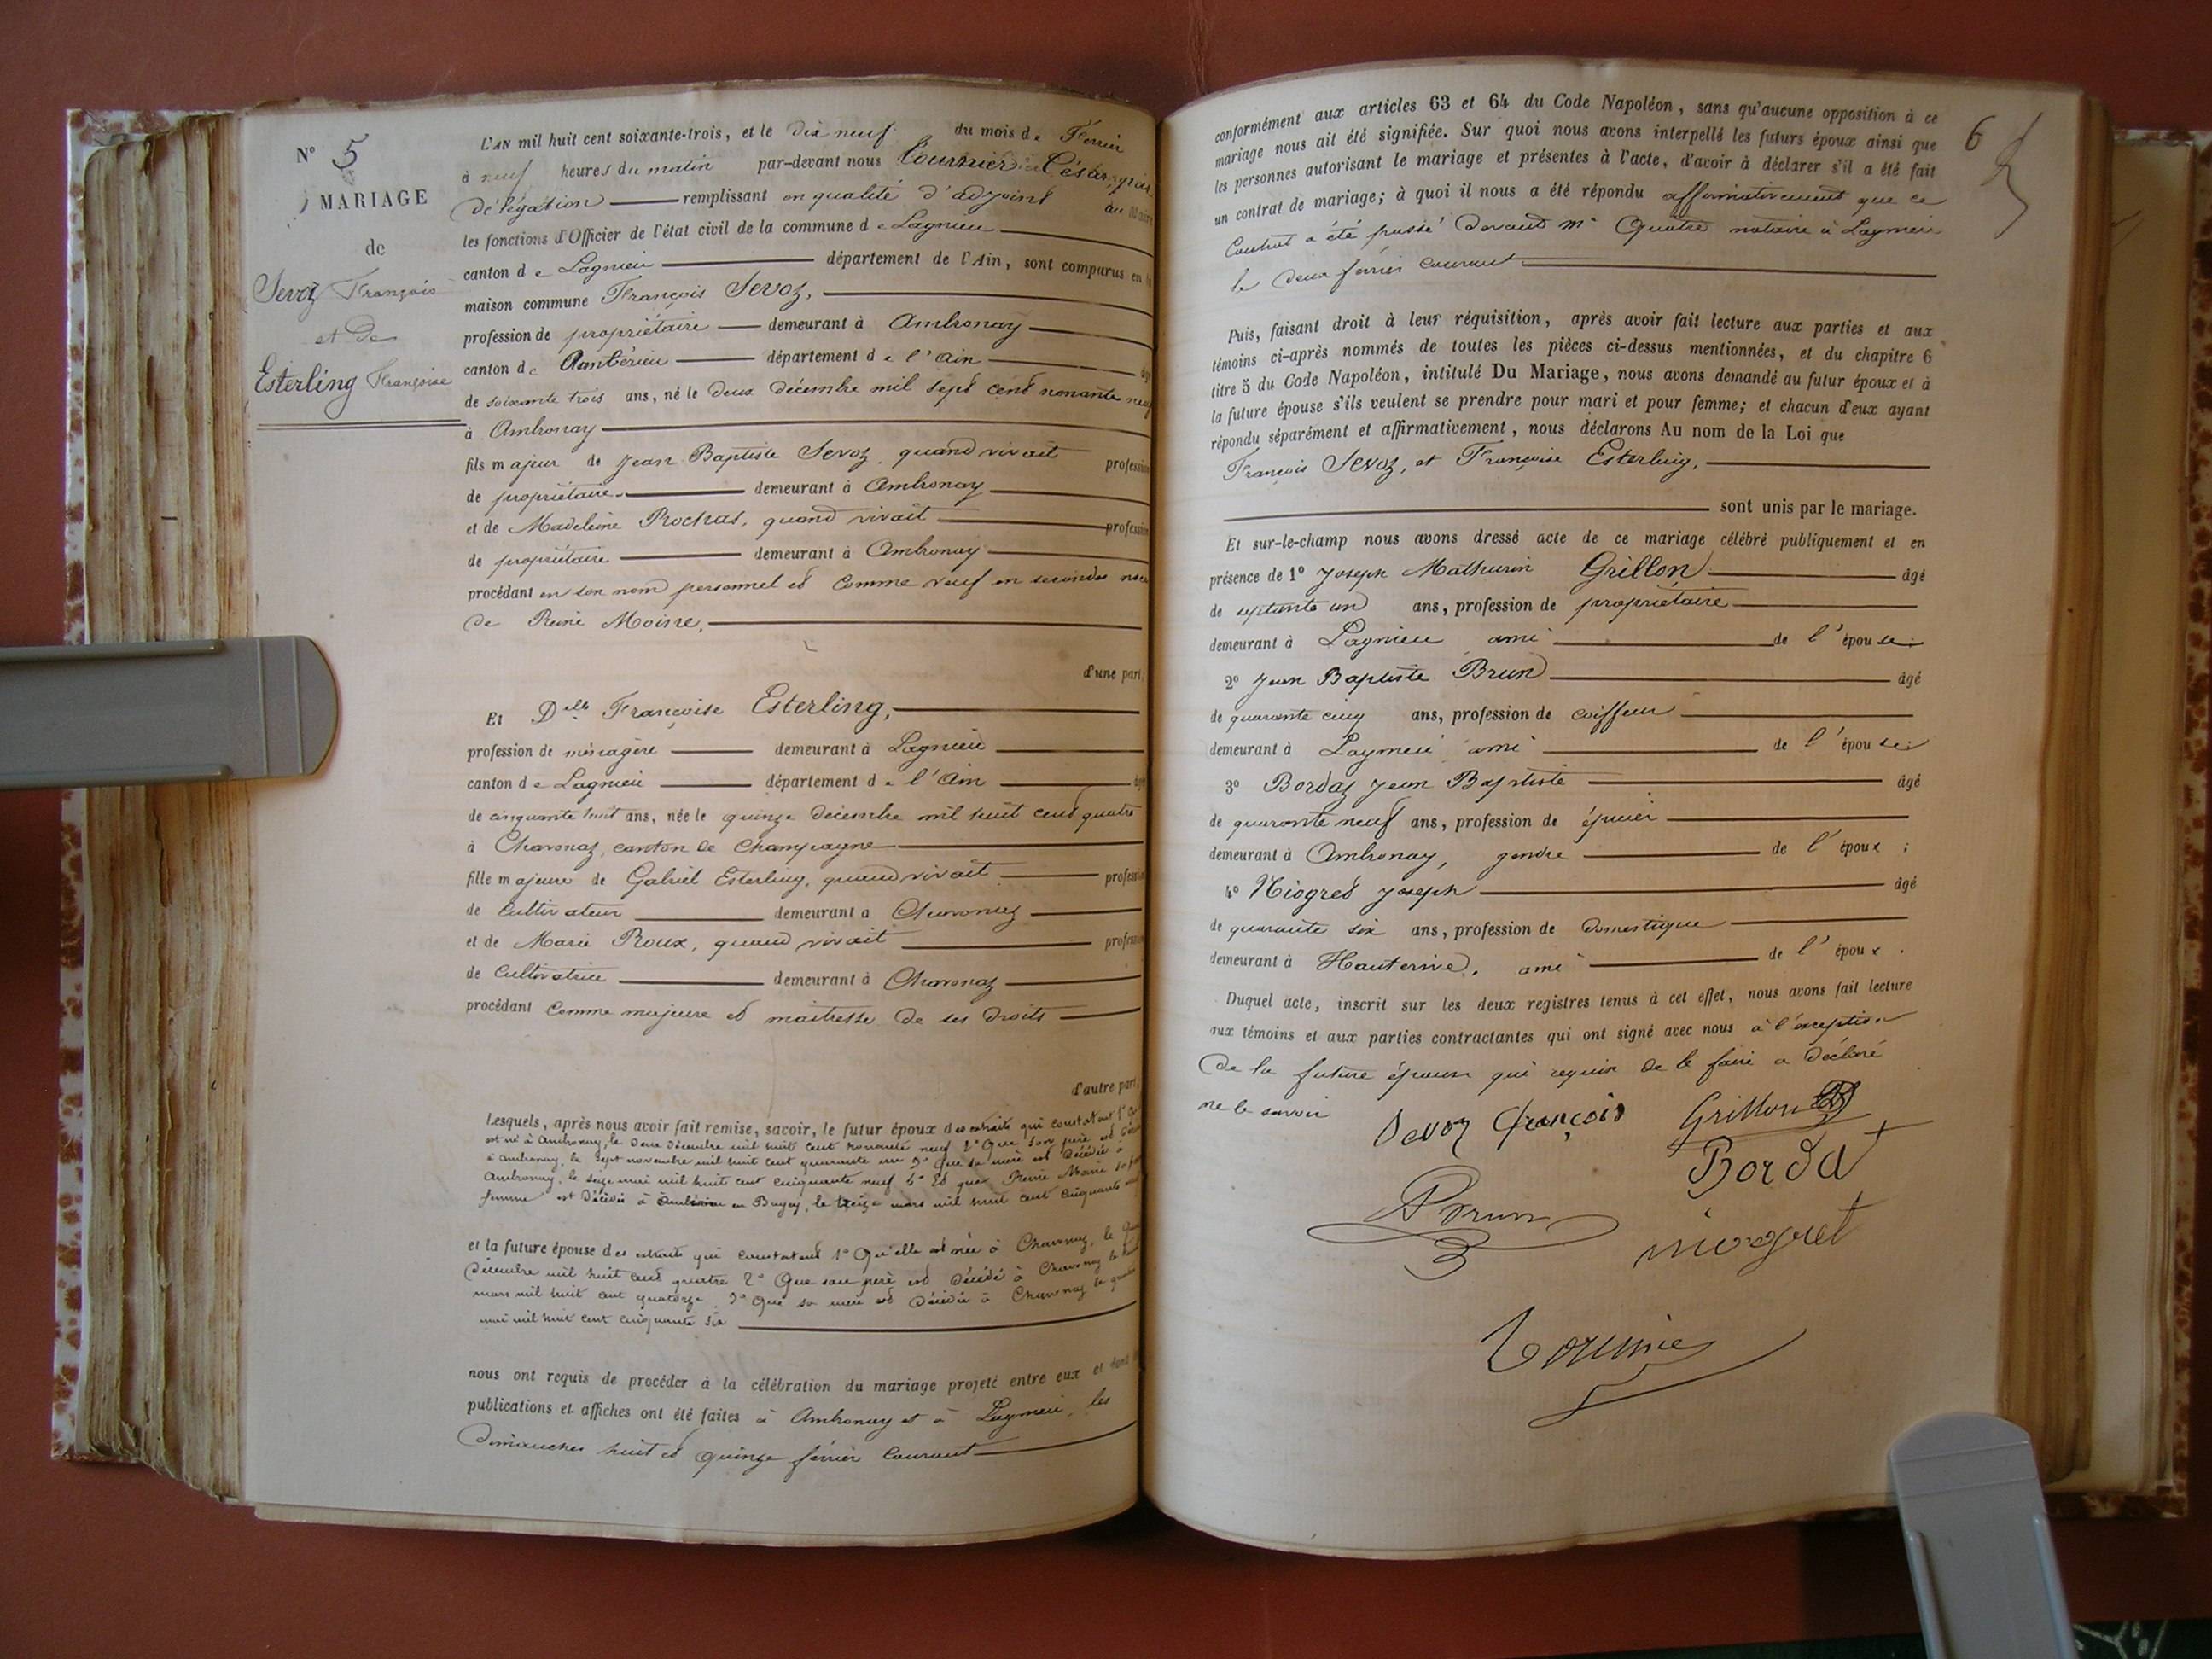 N° 5
MARIAGE
de
Sevoz François
et de
Esterling Françoise
L'AN mil huit cent soixante-trois, et le dix neuf du mois de Février
à neuf heures du matin par-devant nous César, par
délégation remplissant en qualité d'adjoint au Maire
les fonctions d'Officier de l'état civil de la commune de Lagnieu
canton de Lagnieu département de l'Ain, sont comparus en la
maison commune François Sevoz,
profession de propriétaire demeurant à Ambronay
canton de Ambérieu département de l'Ain âgé
de soixante trois ans, né le deux décembre mil sept cent nonante neuf
à Ambronay
fils majeur de Jean Baptiste Sevoz, quand vivait profession
de propriétaire demeurant à Ambronay
et de Madeleine Rochas, quand vivait profession
de propriétaire demeurant à Ambronay
procédant en son nom personnel et comme veuf en secondes noces
de Reine Moine,
d'une part,
Et Delle Françoise Esterling,
profession de ménagère demeurant à Lagnieu
canton de Lagnieu département de l'Ain âgé
de cinquante huit ans, née le quinze décembre mil huit cent quatre
à Chavonaz, canton de Champagne
fille majeure de Gabriel Esterling, quand vivait profession
de cultivateur demeurant à Chavonaz
et de Marie Roux, quand vivait profession
de cultivatrice demeurant à Chavonaz
procédant comme majeure et maitresse de ses droits
d'autre part,
Lesquels, après nous avoir fait remise, savoir, le futur époux des extraits qui constatent 1° Qu'il
est né à Ambronay, le deux décembre mil huit cent nonante neuf 2° Que son père est décédé
à Ambronay, le sept novembre mil huit cent quarante un 3° Que sa mère est décédée à
Ambronay, le seize mai mil huit cent cinquante neuf 4° Et que Reine Moine sa
femme est décédée à Ambérieu en Bugey, le treize mars mil huit cent cinquante
et la future épouse des extraits qui constatent 1° Qu'elle est née à Chavonaz, le quinze
décembre mil huit cent quatre 2° Que son père est décédé à Chavonaz le
mars mil huit cent quatorze 3° Que sa mère est décédée à Chavonaz le
mai mil huit cent cinquante six
nous ont requis de procéder à la célébration du mariage projeté entre eux et dont les
publications et affiches ont été faites à Ambronay et à Lagnieu, les
Dimanches huit et quinze février courant
6
conformément aux articles 63 et 64 du Code Napoléon, sans qu'aucune opposition à ce
mariage nous ait été signifiée. Sur quoi nous avons interpellé les futurs époux ainsi que
les personnes autorisant le mariage et présentes à l'acte, d'avoir à déclarer s'il a été fait
un contrat de mariage; à quoi il nous a été répondu affirmativement que ce
Contrat a été passé devant Me Quatre notaire à Lagnieu
le deux février courant
Puis, faisant droit à leur réquisition, après avoir fait lecture aux parties et aux
témoins ci-après nommés de toutes les pièces ci-dessus mentionnées, et du chapitre 6
titre 5 du Code Napoléon, intitulé Du Mariage, nous avons demandé au futur époux et à
la future épouse s'ils veulent se prendre pour mari et pour femme; et chacun d'eux ayant
répondu séparément et affirmativement, nous déclarons Au nom de la Loi que
François Sevoz, et Françoise Esterling,
sont unis par le mariage.
Et sur-le-champ nous avons dressé acte de ce mariage célébré publiquement et en
présence de 1° Joseph Mathurin Grillon âgé
de septante un ans, profession de propriétaire
demeurant à Lagnieu ami de l'épouse;
2° Jean Baptiste Brun âgé
de quarante cinq ans, profession de coiffeur
demeurant à Lagnieu ami de l'épouse;
3° Bordaz Jean Baptiste âgé
de quarante neuf ans, profession de épicier
demeurant à Ambronay, gendre de l'époux;
4° Niogret Joseph âgé
de quarante six ans, profession de domestique
demeurant à Hauterive, ami de l'époux.
Duquel acte, inscrit sur les deux registres tenus à cet effet, nous avons fait lecture
aux témoins et aux parties contractantes qui ont signé avec nous à l'exception
de la future épouse qui requise de le faire a déclaré
ne le savoir
Sevoz François Grillon
Bordat
Brun
niogret